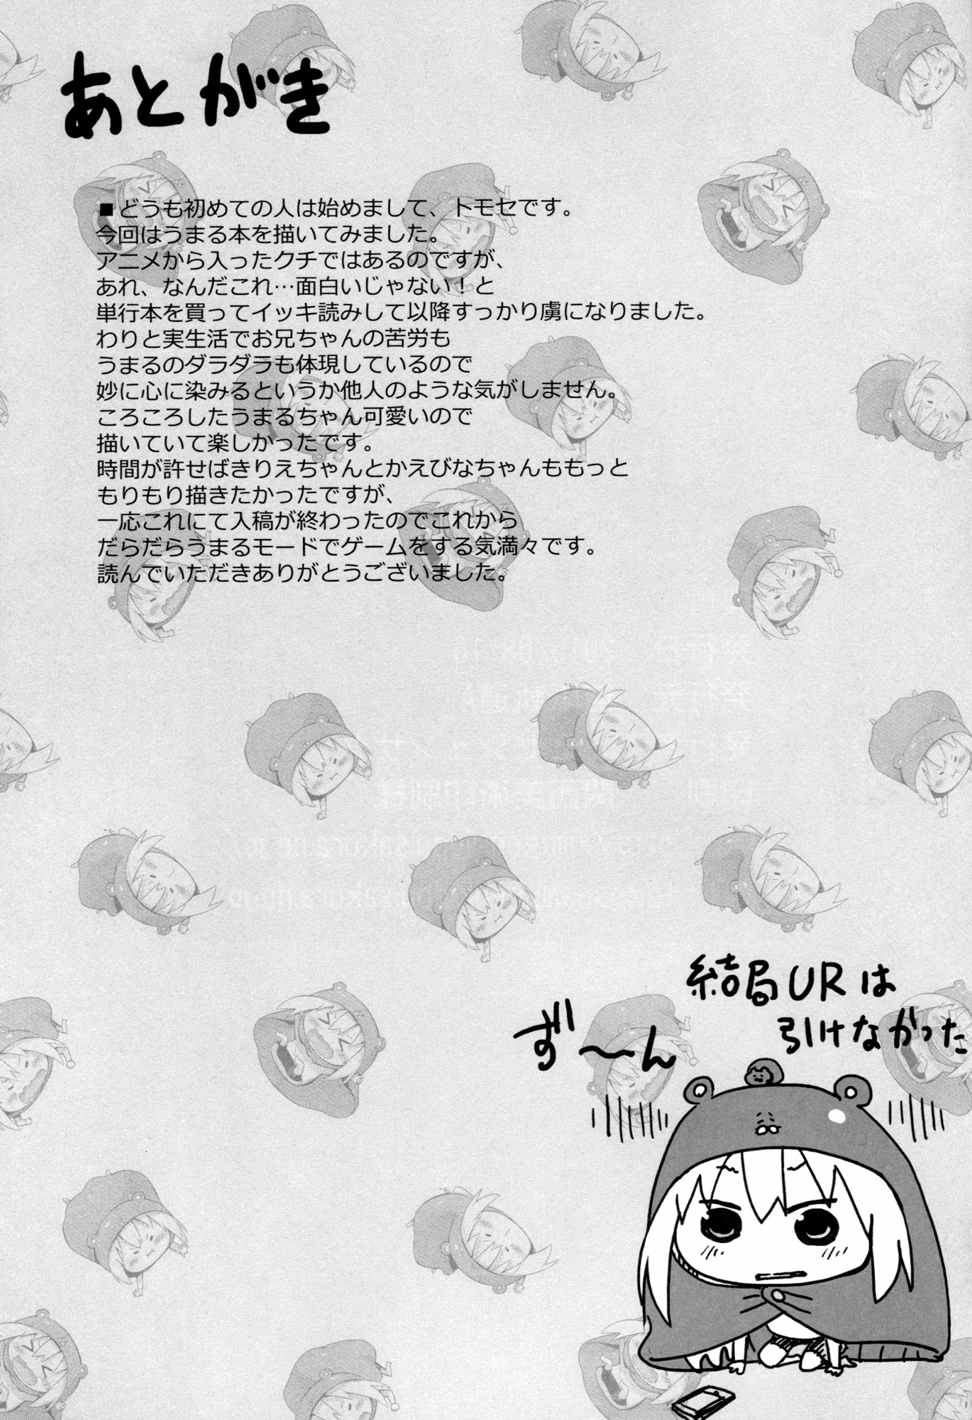 あとがき
■どうも初めての人は始めまして、トモセです。
今回はうまる本を描いてみました。
アニメから入ったクチではあるのですが、
あれ、なんだこれ…面白いじゃない！と
単行本を買ってイッキ読みして以降すっかり虜になりました。
わりと実生活でお兄ちゃんの苦労も
うまるのダラダラも体現しているので
妙に心に染みるというか他人のような気がしません。
ころころしたうまるちゃん可愛いので
描いていて楽しかったです。
時間が許せばきりえちゃんとかえびなちゃんももっと
もりもり描きたかったですが、
一応これにて入稿が終わったのでこれから
だらだらうまるモードでゲームをする気満々です。
読んでいただきありがとうございました。
結局URは
引けなかった
ず〜ん